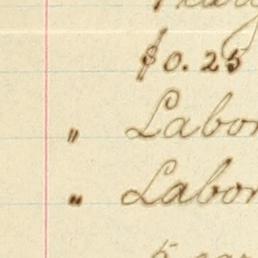 $0.25
" Labor
" Labor